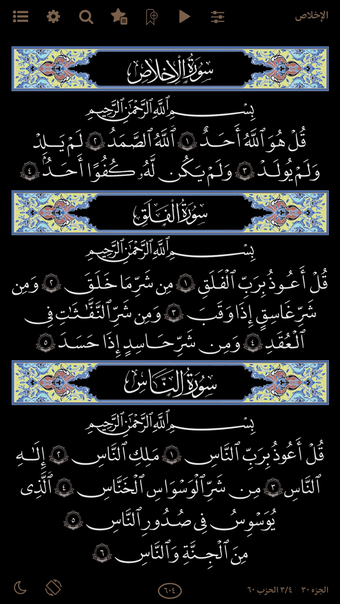 الإخلاص
سُورَةُ الإِخْلَاصِ
بِسْمِ ٱللَّهِ ٱلرَّحْمَٰنِ ٱلرَّحِيمِ
قُلْ هُوَ ٱللَّهُ أَحَدٌ ١ ٱللَّهُ ٱلصَّمَدُ ٢ لَمْ يَلِدْ
وَلَمْ يُولَدْ ٣ وَلَمْ يَكُن لَّهُۥ كُفُوًا أَحَدٌۢ ٤
سُورَةُ الْفَلَقِ
بِسْمِ ٱللَّهِ ٱلرَّحْمَٰنِ ٱلرَّحِيمِ
قُلْ أَعُوذُ بِرَبِّ ٱلْفَلَقِ ١ مِن شَرِّ مَا خَلَقَ ٢ وَمِن
شَرِّ غَاسِقٍ إِذَا وَقَبَ ٣ وَمِن شَرِّ ٱلنَّفَّٰثَٰتِ فِى
ٱلْعُقَدِ ٤ وَمِن شَرِّ حَاسِدٍ إِذَا حَسَدَ ٥
سُورَةُ النَّاسِ
بِسْمِ ٱللَّهِ ٱلرَّحْمَٰنِ ٱلرَّحِيمِ
قُلْ أَعُوذُ بِرَبِّ ٱلنَّاسِ ١ مَلِكِ ٱلنَّاسِ ٢ إِلَٰهِ
ٱلنَّاسِ ٣ مِن شَرِّ ٱلْوَسْوَاسِ ٱلْخَنَّاسِ ٤ ٱلَّذِى
يُوَسْوِسُ فِى صُدُورِ ٱلنَّاسِ ٥
مِنَ ٱلْجِنَّةِ وَٱلنَّاسِ ٦
الجزء ٣٠ ٣/٤ الحزب ٦٠
٦٠٤